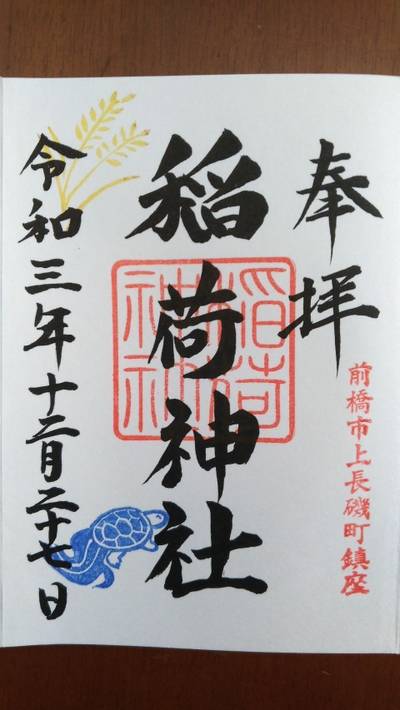 奉拝
前橋市上長磯町鎮座
稲荷神社
稲荷神社
令和三年十二月二十七日